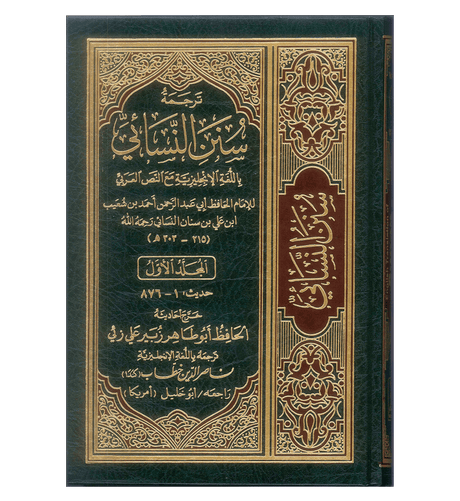 ترجمة
سنن النسائي
باللغة الإنجليزية مع النص العربي
للإمام الحافظ أبي عبد الرحمن أحمد بن شعيب
ابن علي بن سنان النسائي رحمه الله
(٢١٥ - ٣٠٣ هـ)
المجلد الأول
حديث: ١ - ٨٧٦
خرج أحاديثه
الحافظ أبو طاهر زبير علي زئي
ترجمه باللغة الإنجليزية
ناصر الدين خطاب (كندا)
راجعه / أبو خليل (أمريكا)
سنن النسائي